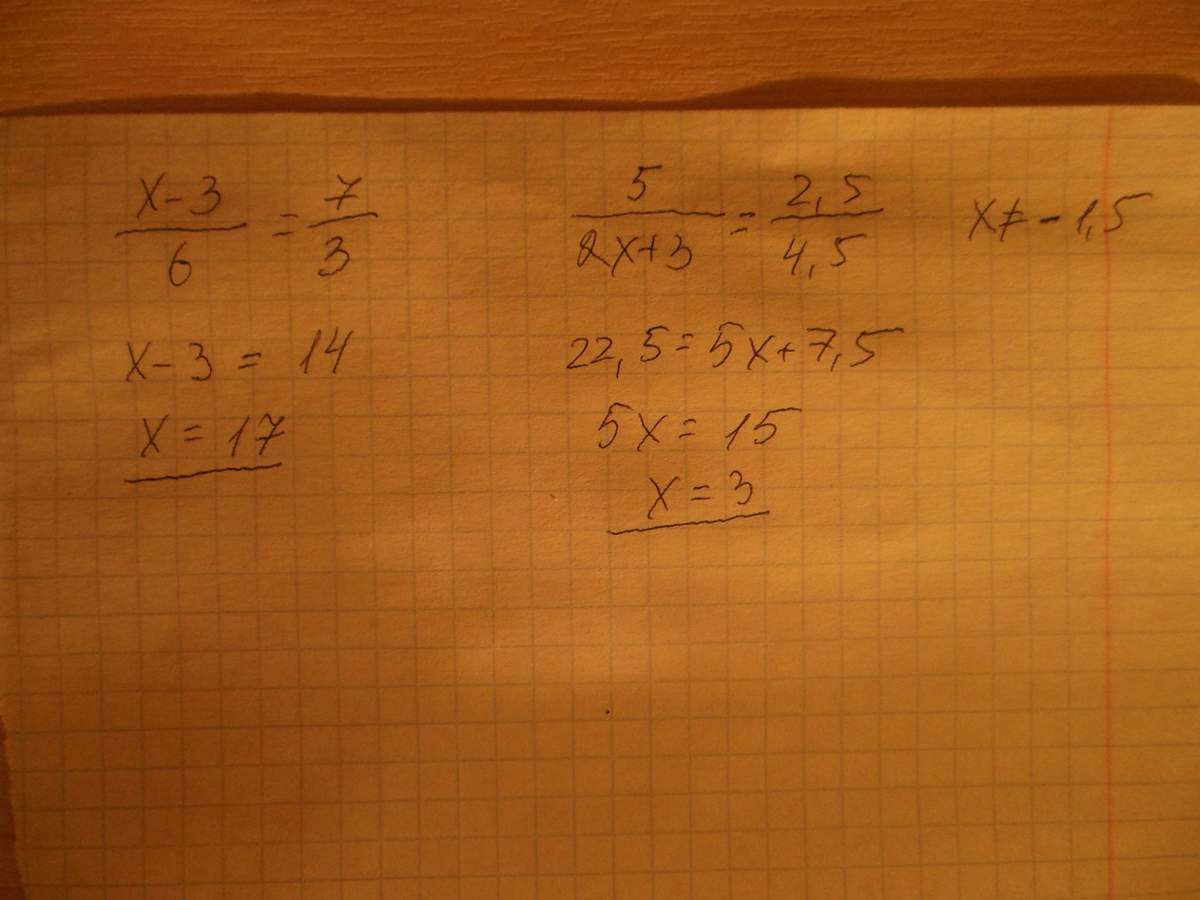 (x-3)/6 = 7/3
x-3 = 14
x = 17
5/(2x+3) = 2,5/4,5    x≠-1,5
22,5 = 5x+7,5
5x = 15
x = 3